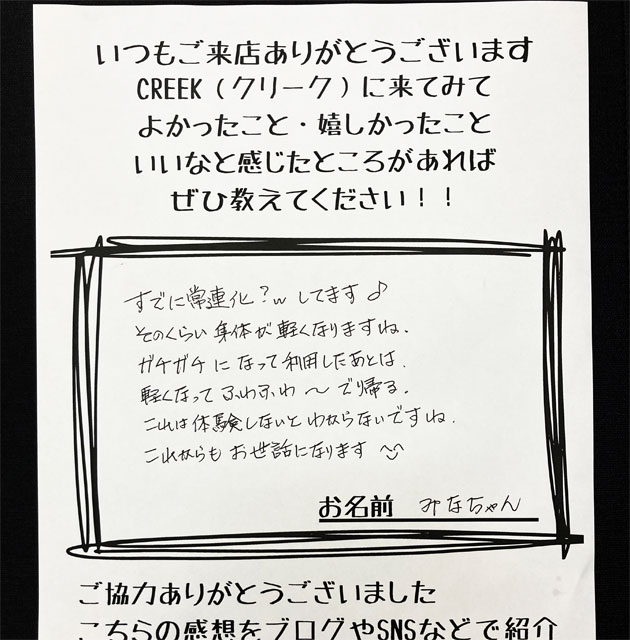 いつもご来店ありがとうございます
CREEK（クリーク）に来てみて
よかったこと・嬉しかったこと
いいなと感じたところがあれば
ぜひ教えてください！！
すでに常連化？w してます♪
そのくらい 身体が 軽くなりますね.
ガチガチ に なって 利用したあとは.
軽くなって ふわふわ 〜 で 帰る.
これは 体験しないと わからないですね.
これからも お世話になります
お名前 みなちゃん
ご協力ありがとうございました
こちらの感想をブログやSNSなどで紹介